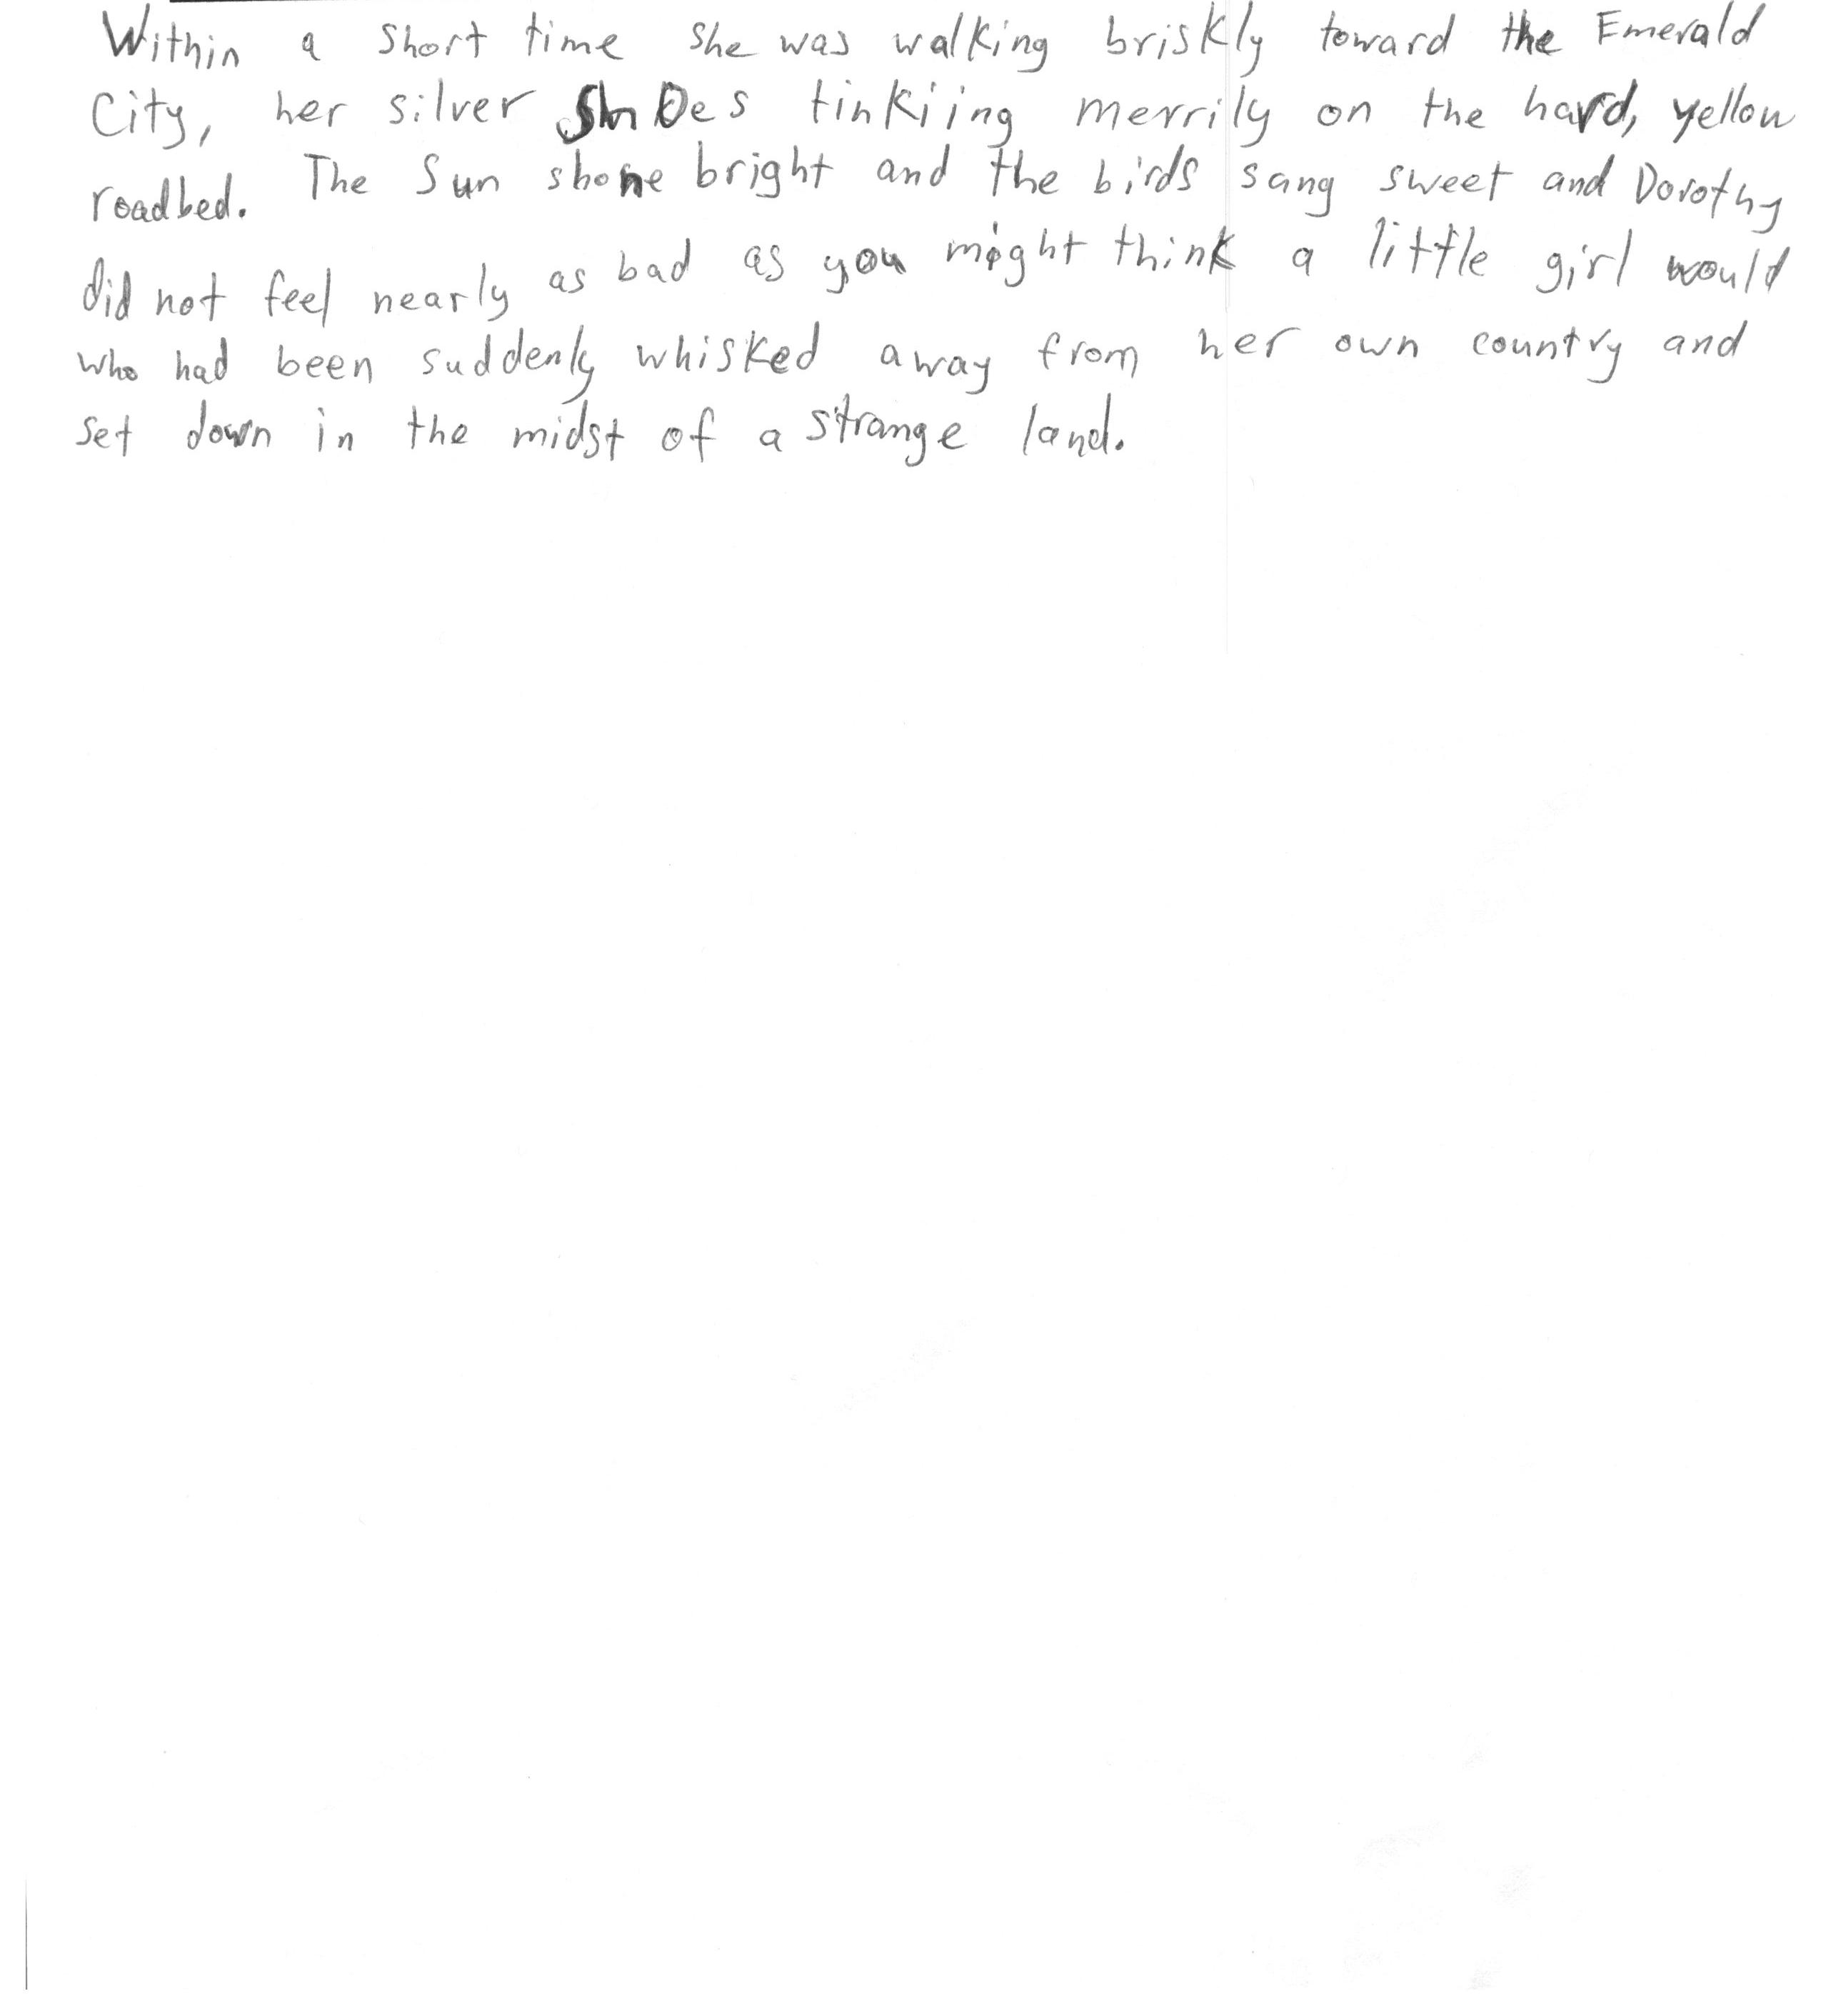 Within a short time she was walking briskly toward the Emerald
City, her silver shoes tinkiing merrily on the hard, yellow
roadbed. The Sun shone bright and the birds sang sweet and Dorothy
did not feel nearly as bad as you might think a little girl would
who had been suddenly whisked away from her own country and
set down in the midst of a strange land.